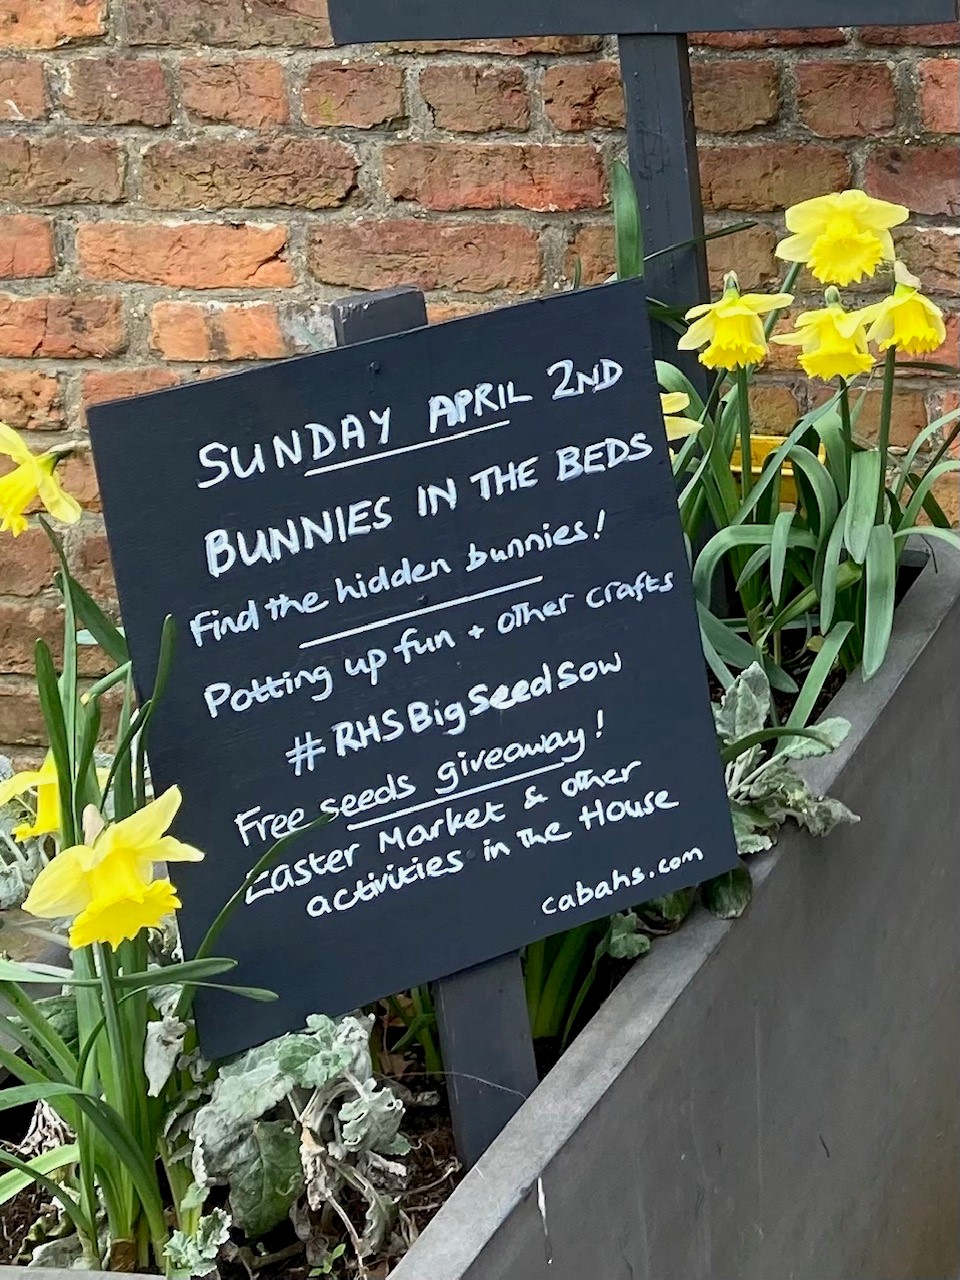 SUNDAY APRIL 2ND
BUNNIES IN THE BEDS
Find the hidden bunnies!
Potting up fun + other crafts
#RHSBigSeedSow
Free seeds giveaway!
Easter Market & other
activities in the House
cabahs.com